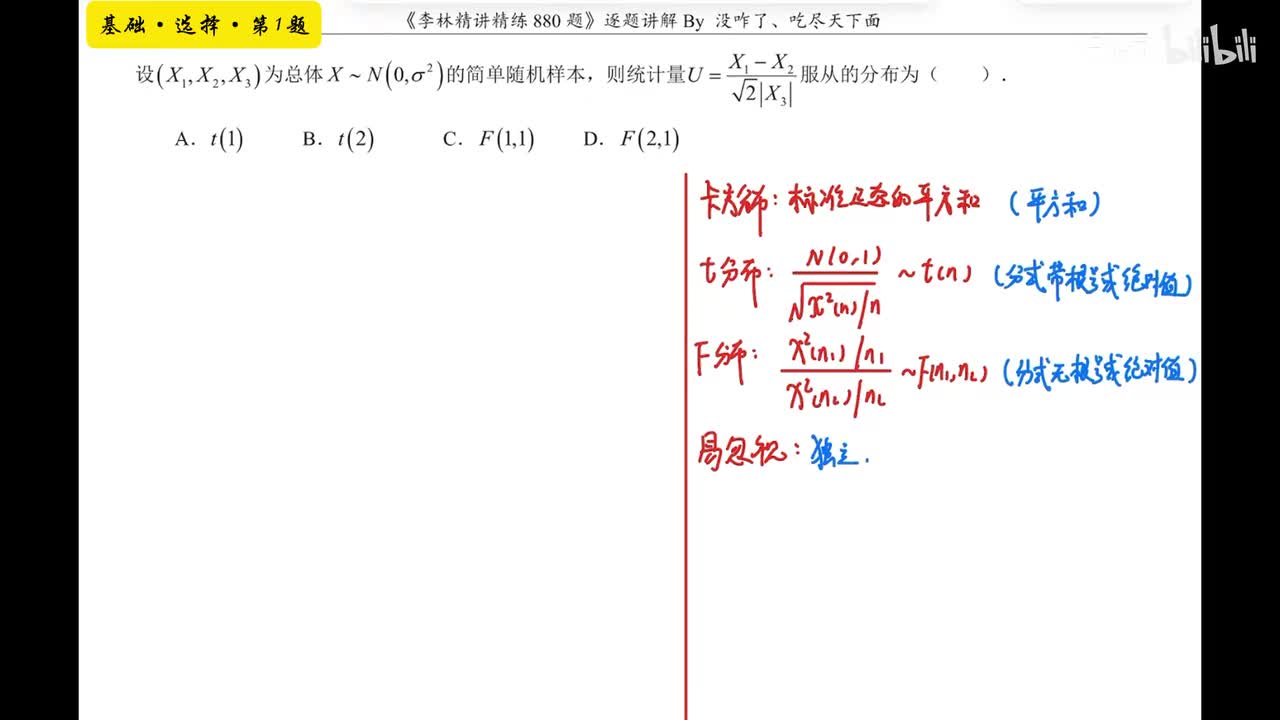 基础·选择·第1题
《李林精讲精练880题》逐题讲解 By 没咋了、吃尽天下面
bilibili
设(X₁,X₂,X₃)为总体X~N(0,σ²)的简单随机样本，则统计量U=(X₁−X₂)/(√2|X₃|)服从的分布为（ ）.
A. t(1) B. t(2) C. F(1,1) D. F(2,1)
卡方分布：标准正态的平方和 （平方和）
t分布：N(0,1)/√(χ²(n)/n) ~t(n) （分式带根号或绝对值）
F分布：(χ²(n₁)/n₁)/(χ²(n₂)/n₂) ~F(n₁,n₂) （分式无根号或绝对值）
易忽视：独立.